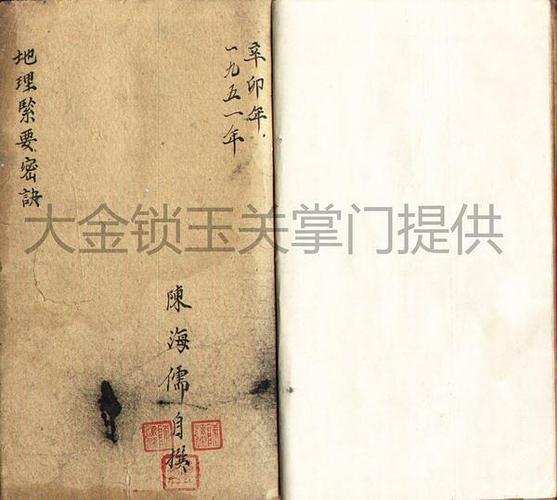 辛卯年
一九五一年
陳海儒自撰
地理緊要密訣
大金锁玉关掌门提供